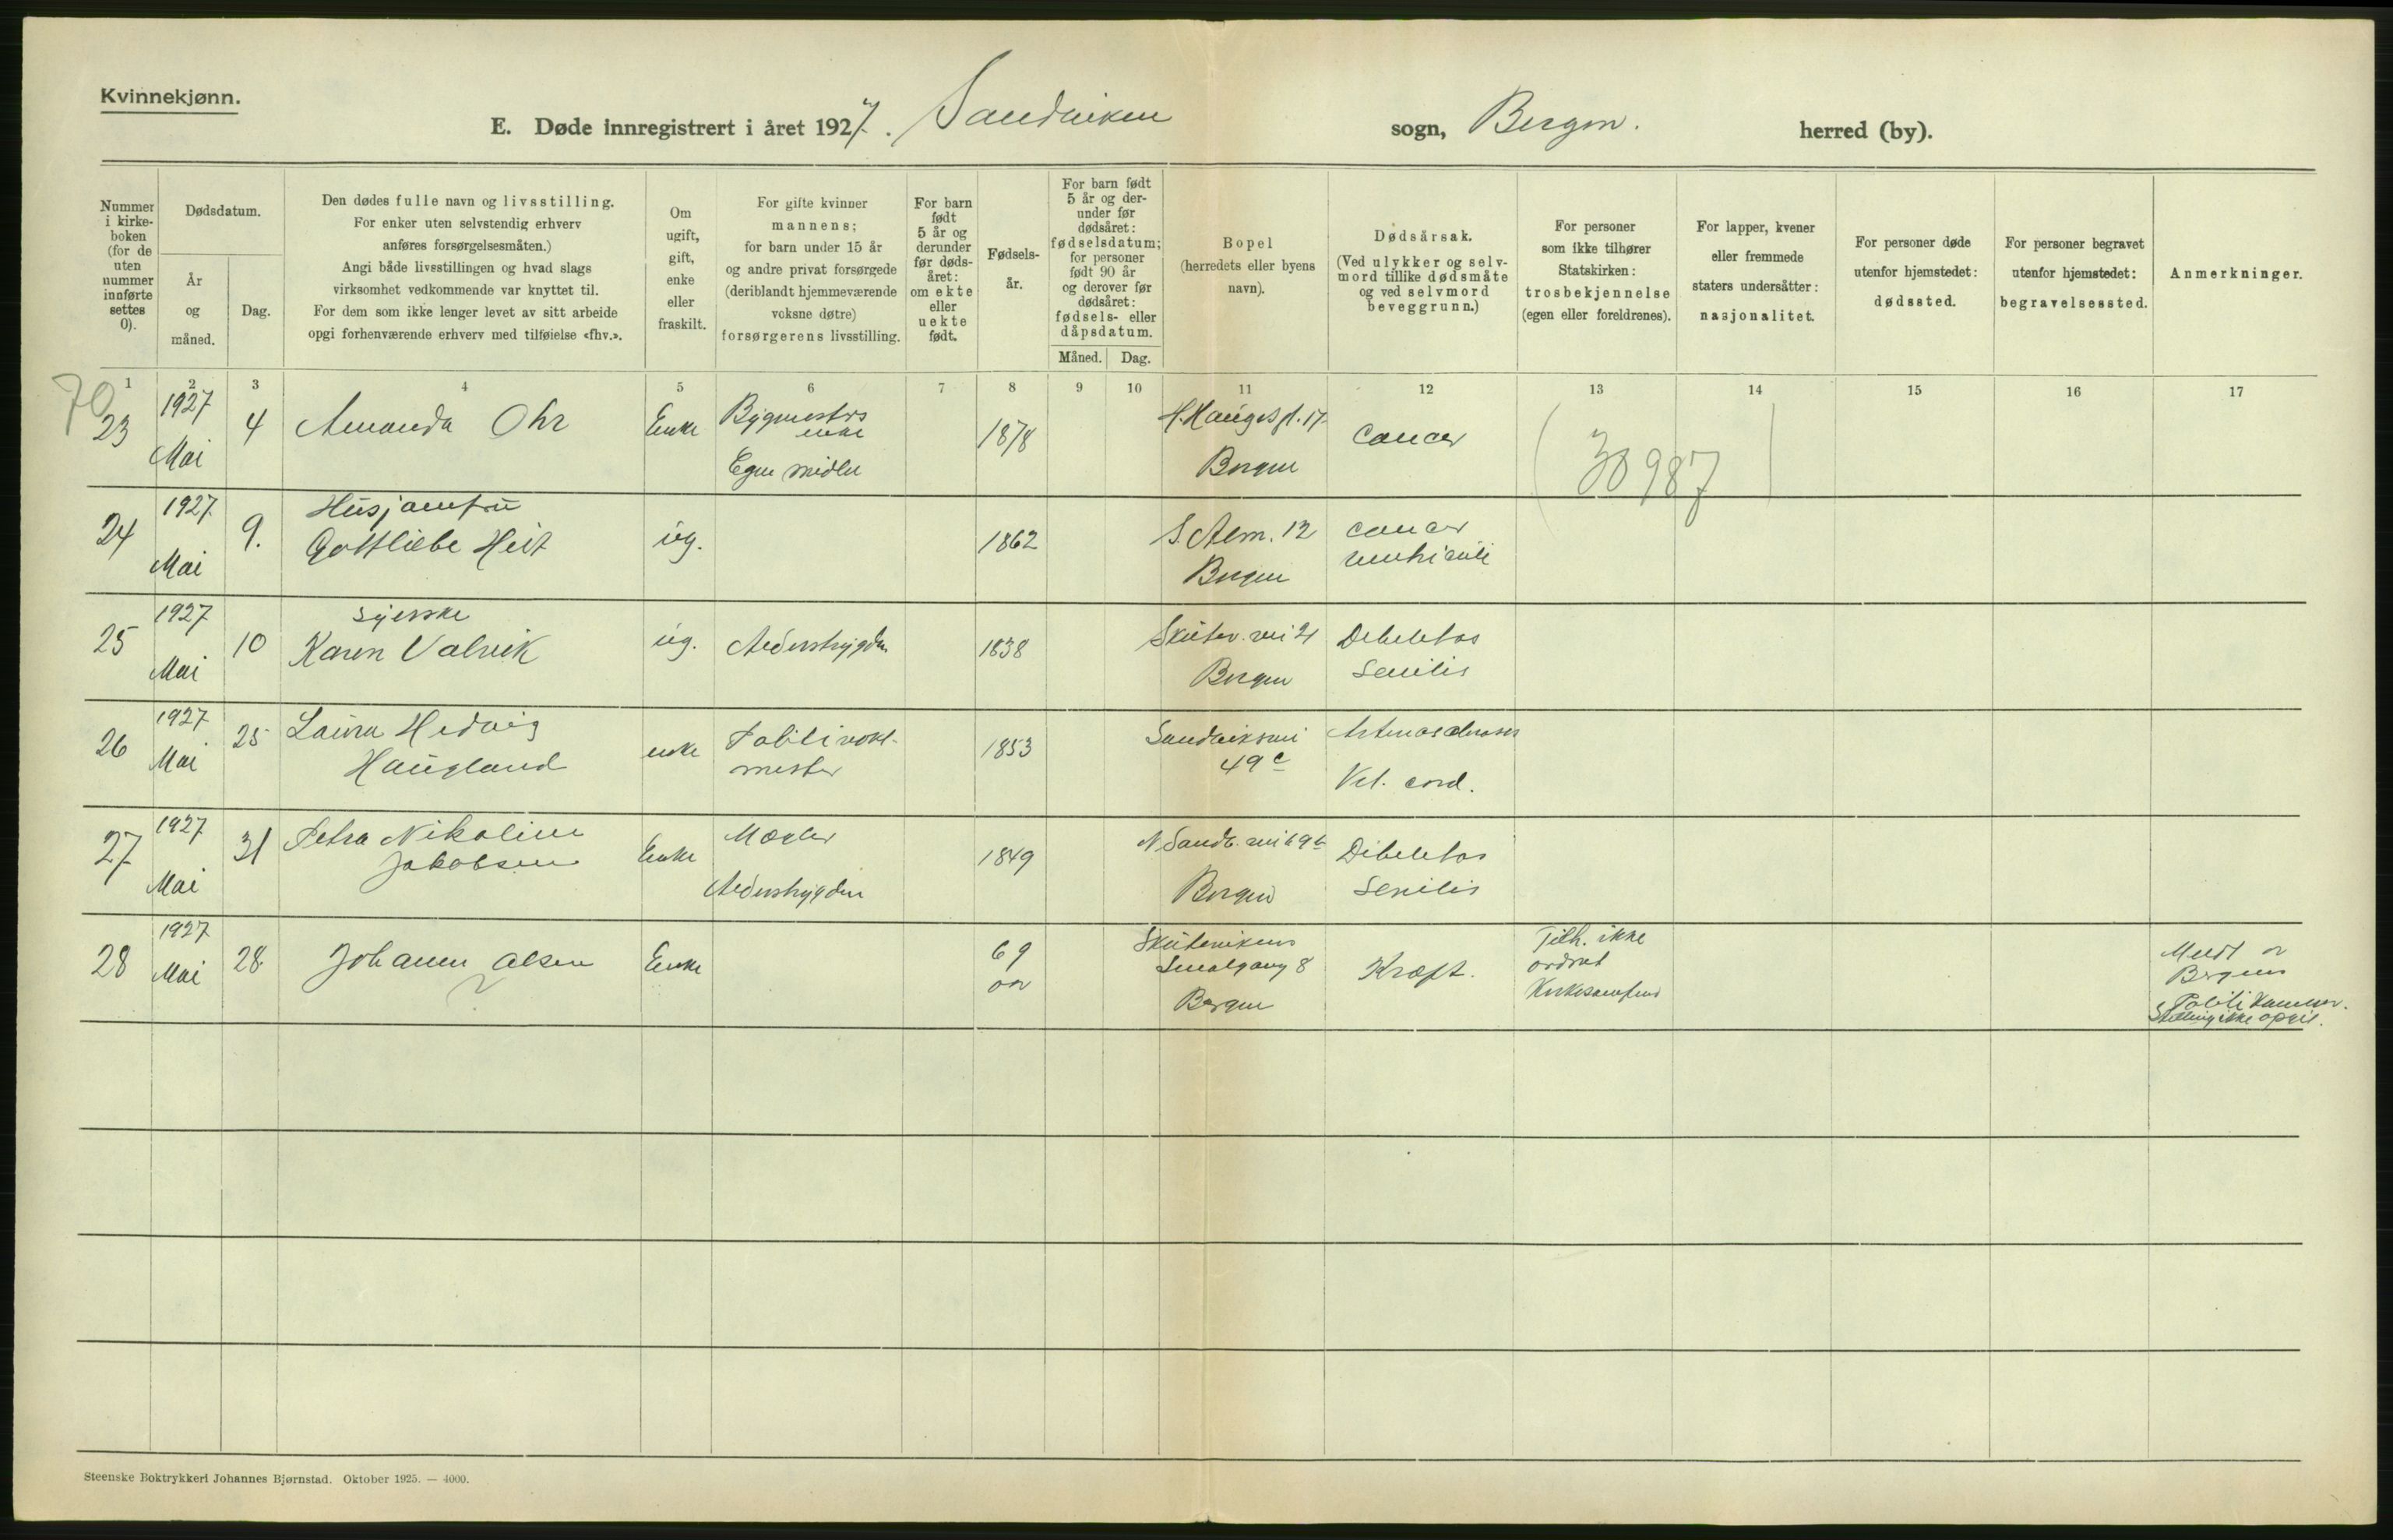 Kvinnekjønn.
E. Døde innregistrert i året 1927. Sandviken sogn, Bergen. herred (by).
Nummer i kirke-boken (for de uten nummer innførte settes 0).
Dødsdatum.
År og måned.
Dag.
Den dødes fulle navn og livsstilling.
For enker uten selvstendig erhverv
anføres forsørgelsesmåten.)
Angi både livsstillingen og hvad slags
virksomhet vedkommende var knyttet til.
For dem som ikke lenger levet av sitt arbeide
opgi forhenværende erhverv med tilføielse «fhv.».
Om
ugift,
gift,
enke
eller
fraskilt.
For gifte kvinner
mannens;
for barn under 15 år
og andre privat forsørgede
(deriblandt hjemmeværende
voksne døtre)
forsørgerens livsstilling.
For barn
født
5 år og
derunder
før døds-
året:
om ekte
eller
uekte
født.
Fødsels-
år.
For barn født
5 år og der-
under før
dødsåret:
fødselsdatum;
for personer
født 90 år
og derover før
dødsåret:
fødsels- eller
dåpsdatum.
Måned. Dag.
Bopel
(herredets eller byens
navn).
Dødsårsak.
(Ved ulykker og selv-
mord tillike dødsmåte
og ved selvmord
beveggrunn.)
For personer
som ikke tilhører
Statskirken:
trosbekjennelse
(egen eller foreldrenes).
For lapper, kvener
eller fremmede
staters undersåtter:
nasjonalitet.
For personer døde
utenfor hjemstedet:
dødssted.
For personer begravet
utenfor hjemstedet:
begravelsessted.
Anmerkninger.
1 2 3 4 5 6 7 8 9 10 11 12 13 14 15 16 17
70
23 1927 Mai 4 Amanda Ohr Enke Bygmesters enke Egne midler 1878 H. Hauges pl. 17 Bergen Cancer
30987
24 1927 Mai 9. Husjomfru Gottliebe Heit ug. 1862 S. Alm. 12 Bergen cancer ventriculi
25 1927 Mai 10 syerske Karen Valvik ug. Alderstrygden 1838 Skutev. vei 21 Bergen Debelitas Senilis
26 1927 Mai 25 Laura Hedvig Haugland enke Politivakt-mester 1853 Sandviksvei 49c Vit. cord.
27 1927 Mai 31 Petra Nikoline Jakobsen Enke Mægler Alderstrygden 1849 N. Sandv. vei 69b Bergen Debelitas Senilis
28 1927 Mai 28 Johanne Olsen Enke 69 aar Skutevikens Smalgang 8 Bergen Kræft. Tilh. ikke ordnet Kirkesamfund Meldt av Bergens Politikammer. Stilling ikke opgit.
Steenske Boktrykkeri Johannes Bjørnstad. Oktober 1925. — 4000.